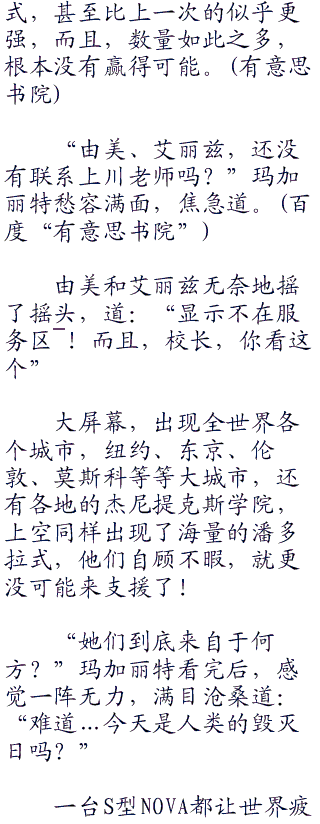 式，甚至比上一次的似乎更
强，而且，数量如此之多，
根本没有赢得可能。(有意思
书院)
“由美、艾丽兹，还没
有联系上川老师吗？”玛加
丽特愁容满面，焦急道。(百
度“有意思书院”)
由美和艾丽兹无奈地摇
了摇头，道：“显示不在服
务区¯！而且，校长，你看这
个”
大屏幕，出现全世界各
个城市，纽约、东京、伦
敦、莫斯科等等大城市，还
有各地的杰尼提克斯学院，
上空同样出现了海量的潘多
拉式，他们自顾不暇，就更
没可能来支援了！
“她们到底来自于何
方？”玛加丽特看完后，感
觉一阵无力，满目沧桑道：
“难道…今天是人类的毁灭
日吗？”
一台S型NOVA都让世界疲